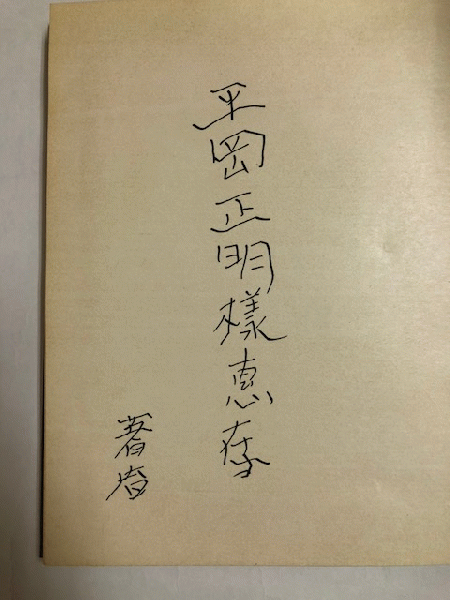 平岡正明様恵存
著者